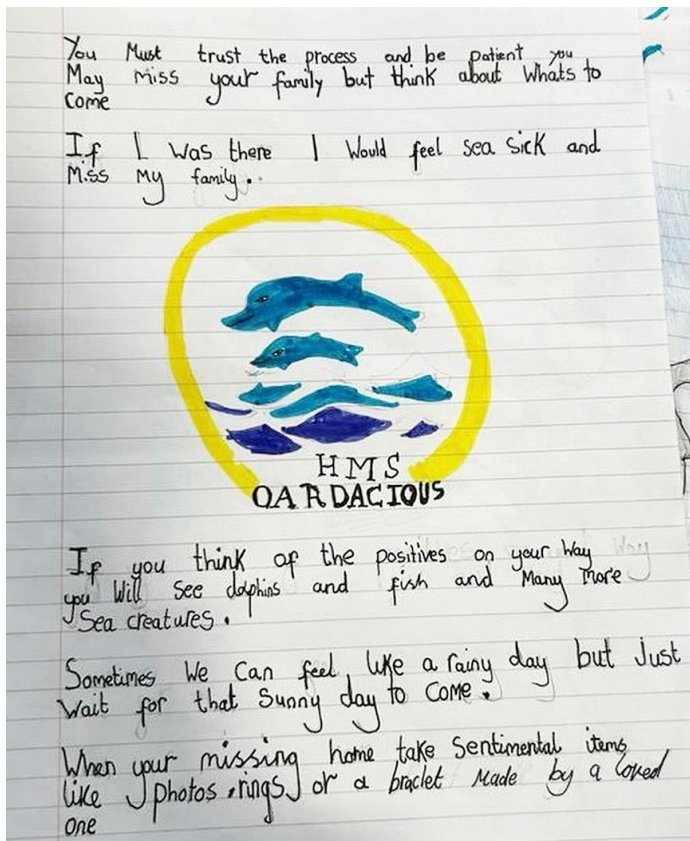 You Must trust the process and be patient you
May Miss your family but think about whats to
Come
If I was there I would feel sea sick and
Miss My family..
HMS
OARDACIOUS
If you think of the positives on your way
you will see dolphins and fish and Many more
Sea creatures.
Sometimes we can feel like a rainy day but Just
wait for that Sunny day to come.
When your missing home take sentimental items
like photos, rings, or a braclet Made by a loved
one